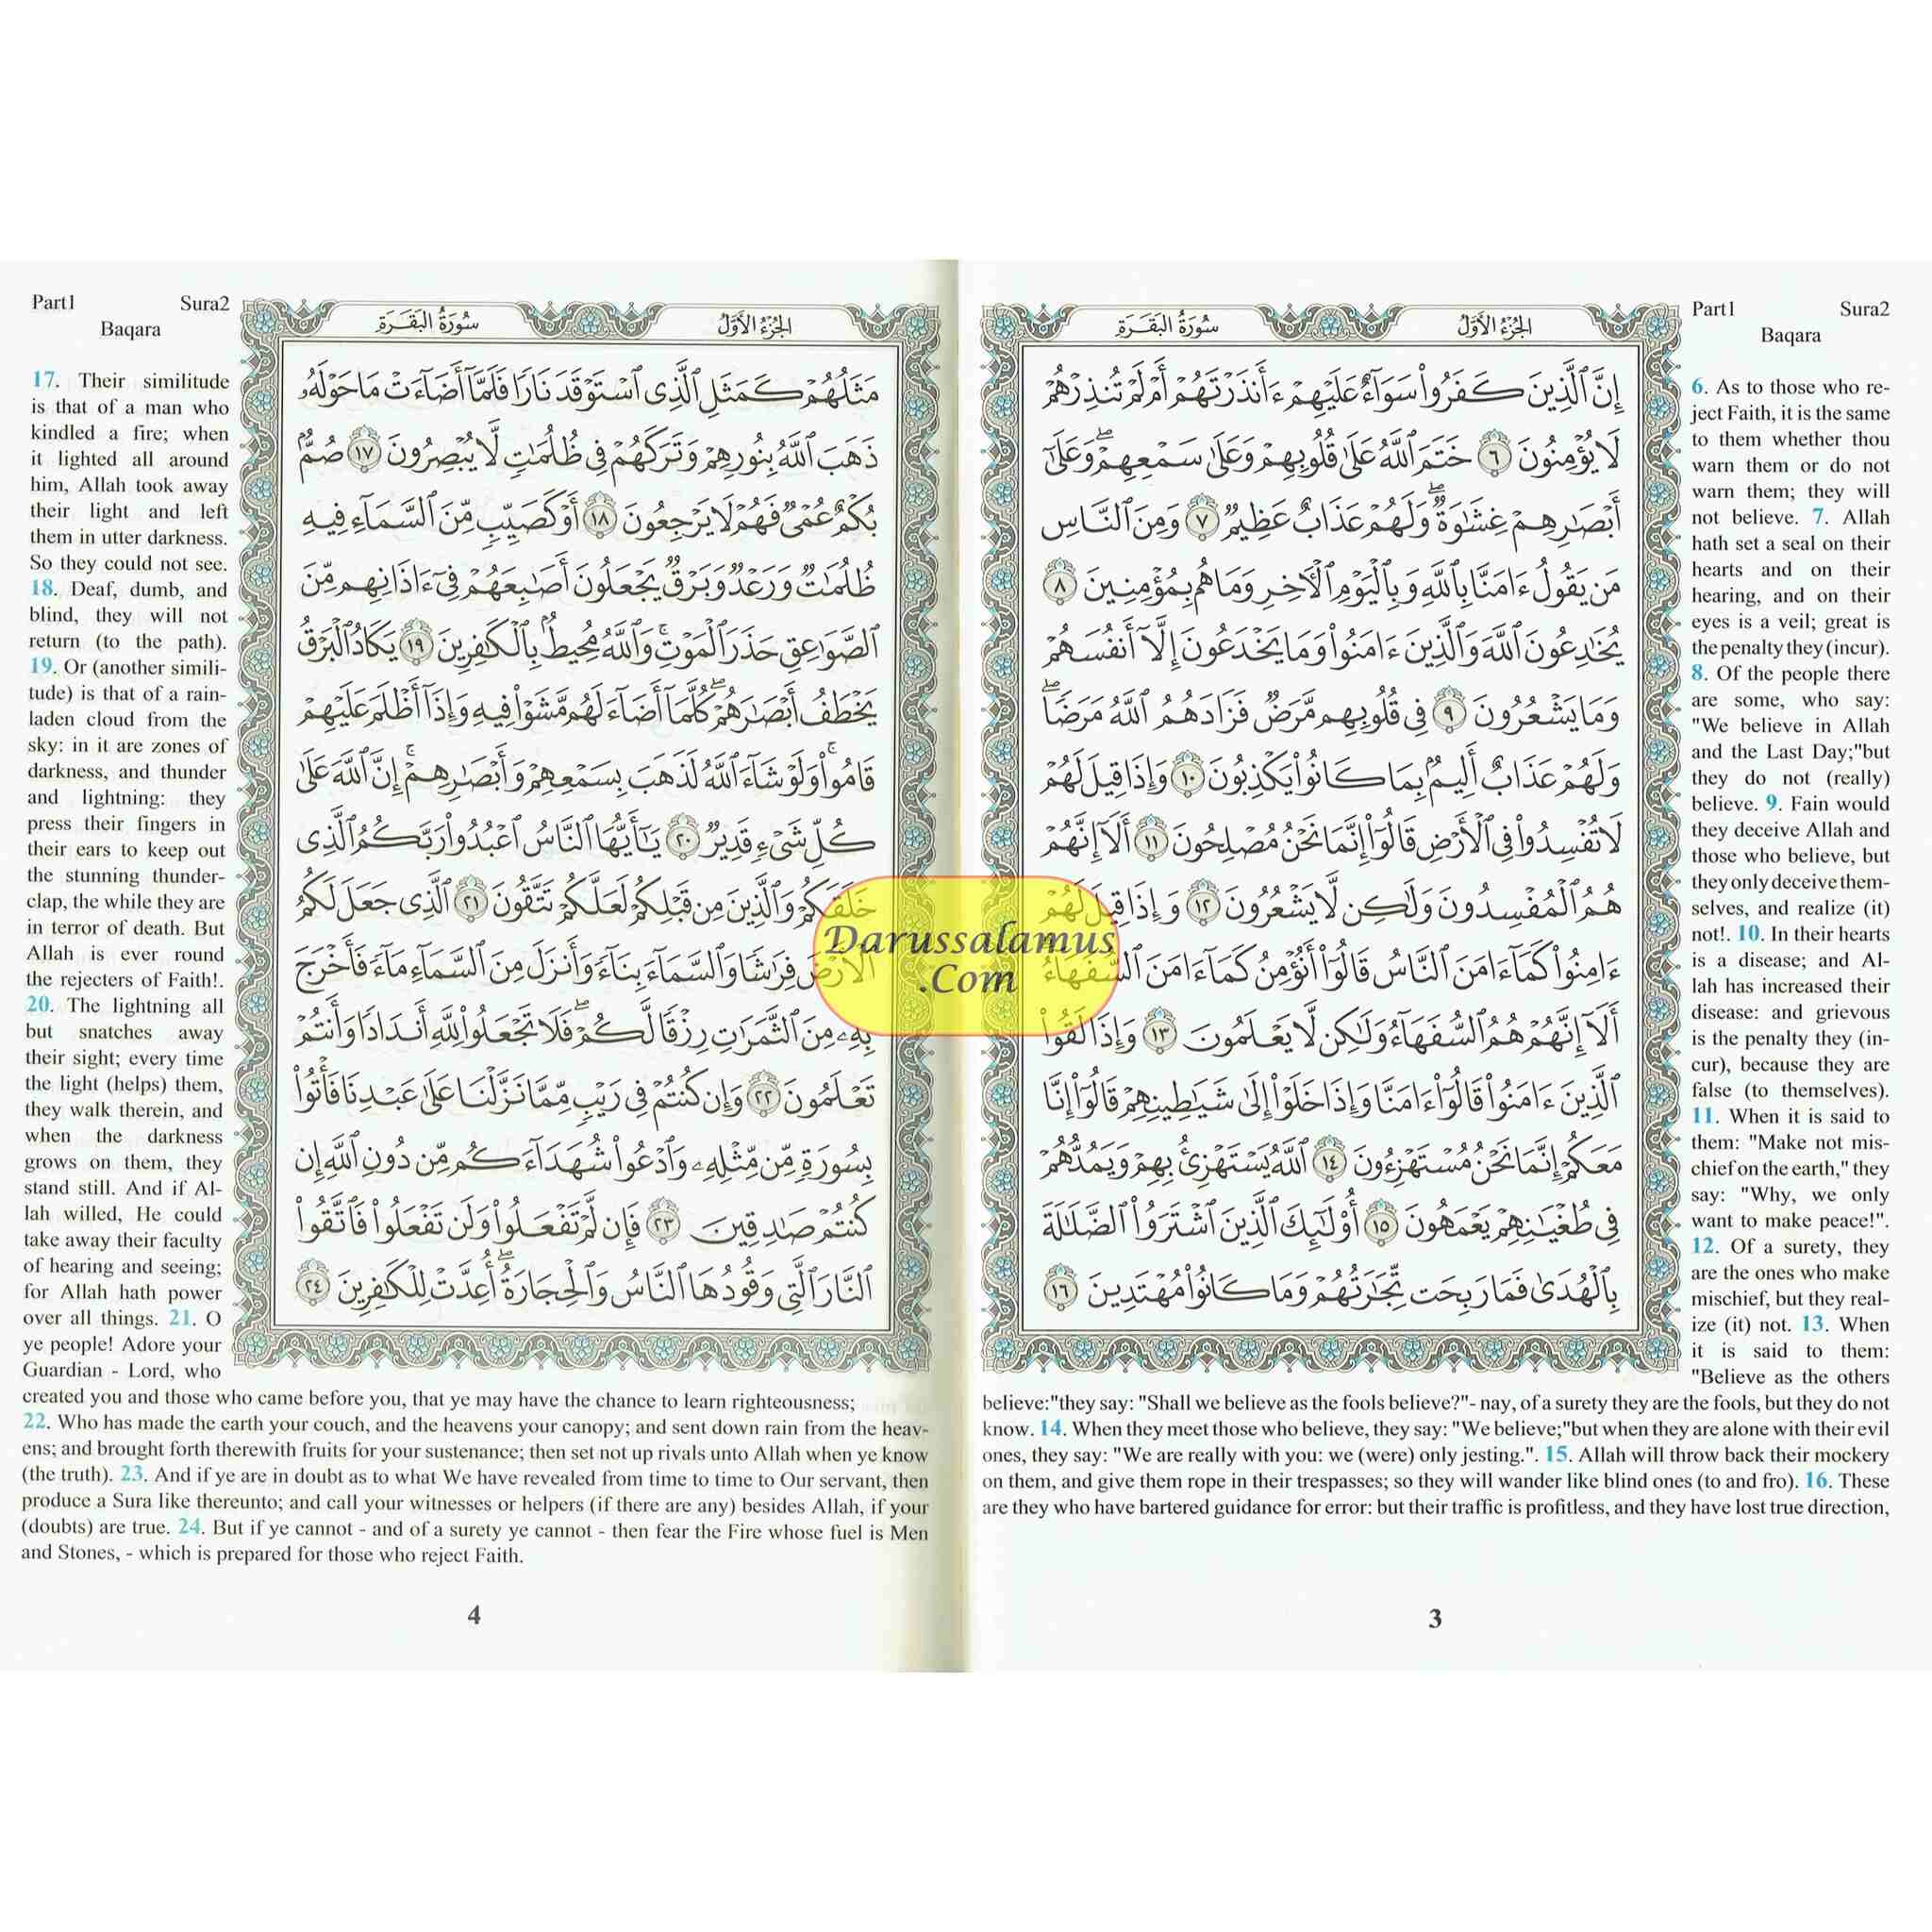 Part1 Sura2
Baqara
سُورَةُ البَقَرَةِ الجُزْءُ الأَوَّلُ
إِنَّ ٱلَّذِينَ كَفَرُوا۟ سَوَآءٌ عَلَيْهِمْ ءَأَنذَرْتَهُمْ أَمْ لَمْ تُنذِرْهُمْ
لَا يُؤْمِنُونَ ٦ خَتَمَ ٱللَّهُ عَلَىٰ قُلُوبِهِمْ وَعَلَىٰ سَمْعِهِمْ ۖ وَعَلَىٰٓ
أَبْصَٰرِهِمْ غِشَٰوَةٌ ۖ وَلَهُمْ عَذَابٌ عَظِيمٌ ٧ وَمِنَ ٱلنَّاسِ
مَن يَقُولُ ءَامَنَّا بِٱللَّهِ وَبِٱلْيَوْمِ ٱلْءَاخِرِ وَمَا هُم بِمُؤْمِنِينَ ٨
يُخَٰدِعُونَ ٱللَّهَ وَٱلَّذِينَ ءَامَنُوا۟ وَمَا يَخْدَعُونَ إِلَّآ أَنفُسَهُمْ
وَمَا يَشْعُرُونَ ٩ فِى قُلُوبِهِم مَّرَضٌ فَزَادَهُمُ ٱللَّهُ مَرَضًا ۖ
وَلَهُمْ عَذَابٌ أَلِيمٌۢ بِمَا كَانُوا۟ يَكْذِبُونَ ١٠ وَإِذَا قِيلَ لَهُمْ
لَا تُفْسِدُوا۟ فِى ٱلْأَرْضِ قَالُوٓا۟ إِنَّمَا نَحْنُ مُصْلِحُونَ ١١ أَلَآ إِنَّهُمْ
هُمُ ٱلْمُفْسِدُونَ وَلَٰكِن لَّا يَشْعُرُونَ ١٢ وَإِذَا قِيلَ لَهُمْ
ءَامِنُوا۟ كَمَآ ءَامَنَ ٱلنَّاسُ قَالُوٓا۟ أَنُؤْمِنُ كَمَآ ءَامَنَ ٱلسُّفَهَآءُ
أَلَآ إِنَّهُمْ هُمُ ٱلسُّفَهَآءُ وَلَٰكِن لَّا يَعْلَمُونَ ١٣ وَإِذَا لَقُوا۟
ٱلَّذِينَ ءَامَنُوا۟ قَالُوٓا۟ ءَامَنَّا وَإِذَا خَلَوْا۟ إِلَىٰ شَيَٰطِينِهِمْ قَالُوٓا۟ إِنَّا
مَعَكُمْ إِنَّمَا نَحْنُ مُسْتَهْزِءُونَ ١٤ ٱللَّهُ يَسْتَهْزِئُ بِهِمْ وَيَمُدُّهُمْ
فِى طُغْيَٰنِهِمْ يَعْمَهُونَ ١٥ أُو۟لَٰٓئِكَ ٱلَّذِينَ ٱشْتَرَوُا۟ ٱلضَّلَٰلَةَ
بِٱلْهُدَىٰ فَمَا رَبِحَت تِّجَٰرَتُهُمْ وَمَا كَانُوا۟ مُهْتَدِينَ ١٦
6. As to those who re-
ject Faith, it is the same
to them whether thou
warn them or do not
warn them; they will
not believe. 7. Allah
hath set a seal on their
hearts and on their
hearing, and on their
eyes is a veil; great is
the penalty they (incur).
8. Of the people there
are some, who say:
"We believe in Allah
and the Last Day;"but
they do not (really)
believe. 9. Fain would
they deceive Allah and
those who believe, but
they only deceive them-
selves, and realize (it)
not!. 10. In their hearts
is a disease; and Al-
lah has increased their
disease: and grievous
is the penalty they (in-
cur), because they are
false (to themselves).
11. When it is said to
them: "Make not mis-
chief on the earth," they
say: "Why, we only
want to make peace!".
12. Of a surety, they
are the ones who make
mischief, but they real-
ize (it) not. 13. When
it is said to them:
"Believe as the others
believe:"they say: "Shall we believe as the fools believe?"- nay, of a surety they are the fools, but they do not
know. 14. When they meet those who believe, they say: "We believe;"but when they are alone with their evil
ones, they say: "We are really with you: we (were) only jesting.". 15. Allah will throw back their mockery
on them, and give them rope in their trespasses; so they will wander like blind ones (to and fro). 16. These
are they who have bartered guidance for error: but their traffic is profitless, and they have lost true direction,
3
Part1 Sura2
Baqara
سُورَةُ البَقَرَةِ الجُزْءُ الأَوَّلُ
مَثَلُهُمْ كَمَثَلِ ٱلَّذِى ٱسْتَوْقَدَ نَارًا فَلَمَّآ أَضَآءَتْ مَا حَوْلَهُۥ
ذَهَبَ ٱللَّهُ بِنُورِهِمْ وَتَرَكَهُمْ فِى ظُلُمَٰتٍ لَّا يُبْصِرُونَ ١٧ صُمٌّۢ
بُكْمٌ عُمْىٌ فَهُمْ لَا يَرْجِعُونَ ١٨ أَوْ كَصَيِّبٍ مِّنَ ٱلسَّمَآءِ فِيهِ
ظُلُمَٰتٌ وَرَعْدٌ وَبَرْقٌ يَجْعَلُونَ أَصَٰبِعَهُمْ فِىٓ ءَاذَانِهِم مِّنَ
ٱلصَّوَٰعِقِ حَذَرَ ٱلْمَوْتِ ۚ وَٱللَّهُ مُحِيطٌۢ بِٱلْكَٰفِرِينَ ١٩ يَكَادُ ٱلْبَرْقُ
يَخْطَفُ أَبْصَٰرَهُمْ ۖ كُلَّمَآ أَضَآءَ لَهُم مَّشَوْا۟ فِيهِ وَإِذَآ أَظْلَمَ عَلَيْهِمْ
قَامُوا۟ ۚ وَلَوْ شَآءَ ٱللَّهُ لَذَهَبَ بِسَمْعِهِمْ وَأَبْصَٰرِهِمْ ۚ إِنَّ ٱللَّهَ عَلَىٰ
كُلِّ شَىْءٍ قَدِيرٌ ٢٠ يَٰٓأَيُّهَا ٱلنَّاسُ ٱعْبُدُوا۟ رَبَّكُمُ ٱلَّذِى
خَلَقَكُمْ وَٱلَّذِينَ مِن قَبْلِكُمْ لَعَلَّكُمْ تَتَّقُونَ ٢١ ٱلَّذِى جَعَلَ لَكُمُ
ٱلْأَرْضَ فِرَٰشًا وَٱلسَّمَآءَ بِنَآءً وَأَنزَلَ مِنَ ٱلسَّمَآءِ مَآءً فَأَخْرَجَ
بِهِۦ مِنَ ٱلثَّمَرَٰتِ رِزْقًا لَّكُمْ ۖ فَلَا تَجْعَلُوا۟ لِلَّهِ أَندَادًا وَأَنتُمْ
تَعْلَمُونَ ٢٢ وَإِن كُنتُمْ فِى رَيْبٍ مِّمَّا نَزَّلْنَا عَلَىٰ عَبْدِنَا فَأْتُوا۟
بِسُورَةٍ مِّن مِّثْلِهِۦ وَٱدْعُوا۟ شُهَدَآءَكُم مِّن دُونِ ٱللَّهِ إِن
كُنتُمْ صَٰدِقِينَ ٢٣ فَإِن لَّمْ تَفْعَلُوا۟ وَلَن تَفْعَلُوا۟ فَٱتَّقُوا۟
ٱلنَّارَ ٱلَّتِى وَقُودُهَا ٱلنَّاسُ وَٱلْحِجَارَةُ ۖ أُعِدَّتْ لِلْكَٰفِرِينَ ٢٤
17. Their similitude
is that of a man who
kindled a fire; when
it lighted all around
him, Allah took away
their light and left
them in utter darkness.
So they could not see.
18. Deaf, dumb, and
blind, they will not
return (to the path).
19. Or (another simili-
tude) is that of a rain-
laden cloud from the
sky: in it are zones of
darkness, and thunder
and lightning: they
press their fingers in
their ears to keep out
the stunning thunder-
clap, the while they are
in terror of death. But
Allah is ever round
the rejecters of Faith!.
20. The lightning all
but snatches away
their sight; every time
the light (helps) them,
they walk therein, and
when the darkness
grows on them, they
stand still. And if Al-
lah willed, He could
take away their faculty
of hearing and seeing;
for Allah hath power
over all things. 21. O
ye people! Adore your
Guardian - Lord, who
created you and those who came before you, that ye may have the chance to learn righteousness;
22. Who has made the earth your couch, and the heavens your canopy; and sent down rain from the heav-
ens; and brought forth therewith fruits for your sustenance; then set not up rivals unto Allah when ye know
(the truth). 23. And if ye are in doubt as to what We have revealed from time to time to Our servant, then
produce a Sura like thereunto; and call your witnesses or helpers (if there are any) besides Allah, if your
(doubts) are true. 24. But if ye cannot - and of a surety ye cannot - then fear the Fire whose fuel is Men
and Stones, - which is prepared for those who reject Faith.
4
Darussalamus
.Com